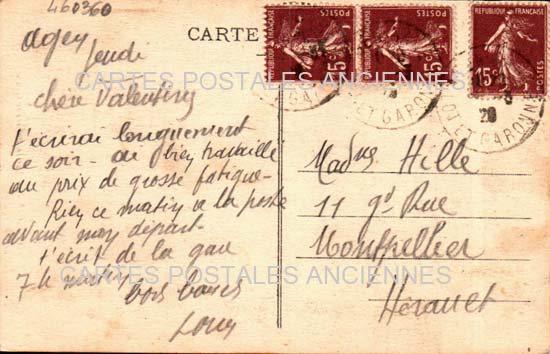 460360
CARTE
REPUBLIQUE FRANÇAISE
POSTES
15c
REPUBLIQUE FRANÇAISE
POSTES
15c
REPUBLIQUE FRANÇAISE
POSTES
15c
ET GARONNE
28
CARTES POSTALES ANCIENNES
Agen
Jeudi
Chère Valentine
t'écrirai longuement
ce soir - ai bien travaillé
au prix de grosse fatigue -
Rien ce matin a la poste
avant mon départ
t'écrit de la gare
7h matin
bons baisers
Louis
Madme Hille
11 gd Rue
Montpellier
Hérault
CARTES POSTALES ANCIENNES